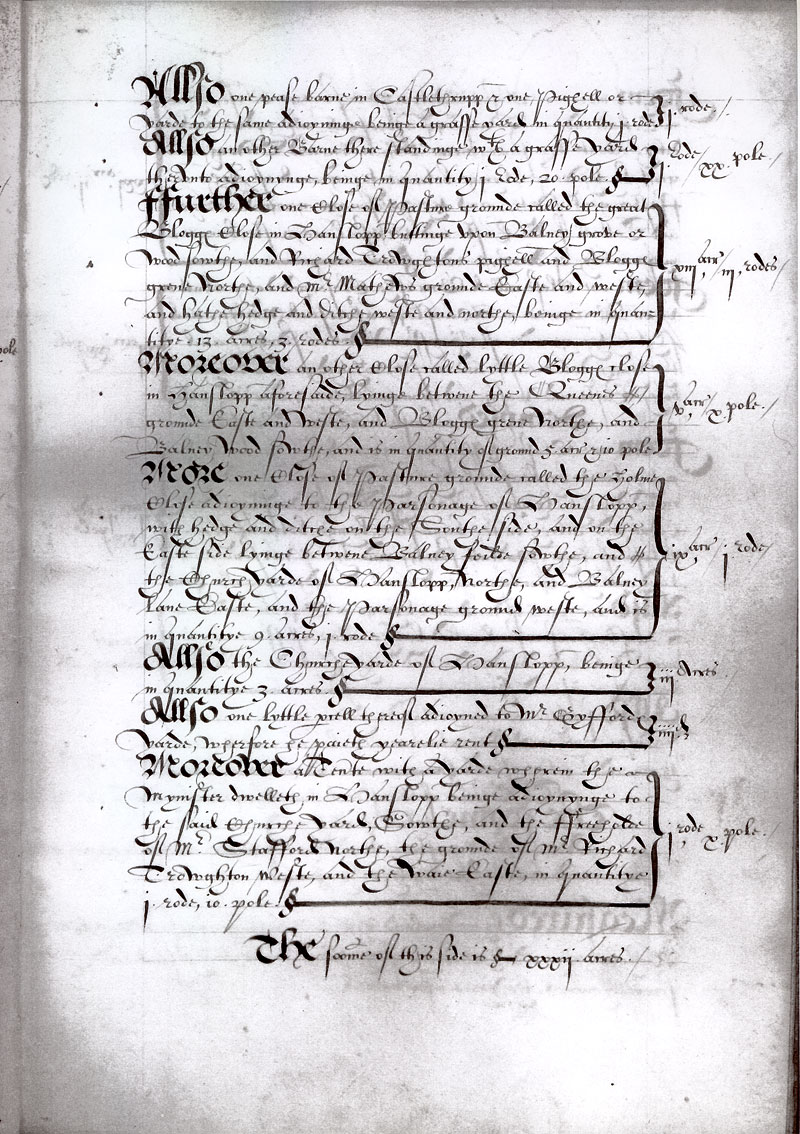 Allso one pease barne in Castlethrupp & one Pighell or
yarde to the same adioyninge beinge a grasse yard in quantity j rode j. rode/
Allso an other Barne there standinge wth a grasse yard
therunto adioynynge, beinge in quantity j. rode, 20. pole. j rode/ xx. pole./
ffurther one Close of Pasture grounde called the great
Blogge Close in Hanslopp buttinge upon Balney grove or
wood sowthe, and Richard Trowghtons pighell and Blogge
grene Northe, and Mr. Mathews grounde Easte and weste, xiij acr/ iij. rodes/
and hathe hedge and ditche weste and northe, beinge in quan
titye. 13. acres, 3. rodes.
Moreover an other Close called lyttle Blogge close
in Hanslopp aforesaide, lyinge betwene the Queenes
grounde Easte and weste, and Blogge grene Northe, and v acr/ x. pole./
Balney wood sowthe, and is in quantity of ground 5. acr & 10 pole.
More one Close of Pasture grounde called the holme
Close adioyninge to the Parsonage of Hanslopp,
with hedge and ditche on the Southe side, and on the
Easte side lyinge betwene Balney sowthe, and ix acr/ j rode/
the Church yarde of Hanslopp, Northe, and Balney
lane Easte, and the Parsonage ground weste, and is
in quantitye 9. acres, j. rode
Allso the Churche yarde of Hanslopp, beinge iij Acres/
in quantitye 3. acres.
Allso one lyttle pcell therof adioyned to Mr. Gyfford
yarde, wherfore he paieth yearelie rent iiij d
Moreover a Tente with a yarde wherein the
Mynister dwelleth in Hanslopp beinge adioynynge to
the said Churche yard, Sowthe, and the ffreeholde
of Mr. Stafford Northe, the grounde of Mr. Richard j rode/ x. pole./
Trowghton weste, and the waie Easte, in quantitye
j. rode, 10. pole.
The some of this side is xxxij. acres./